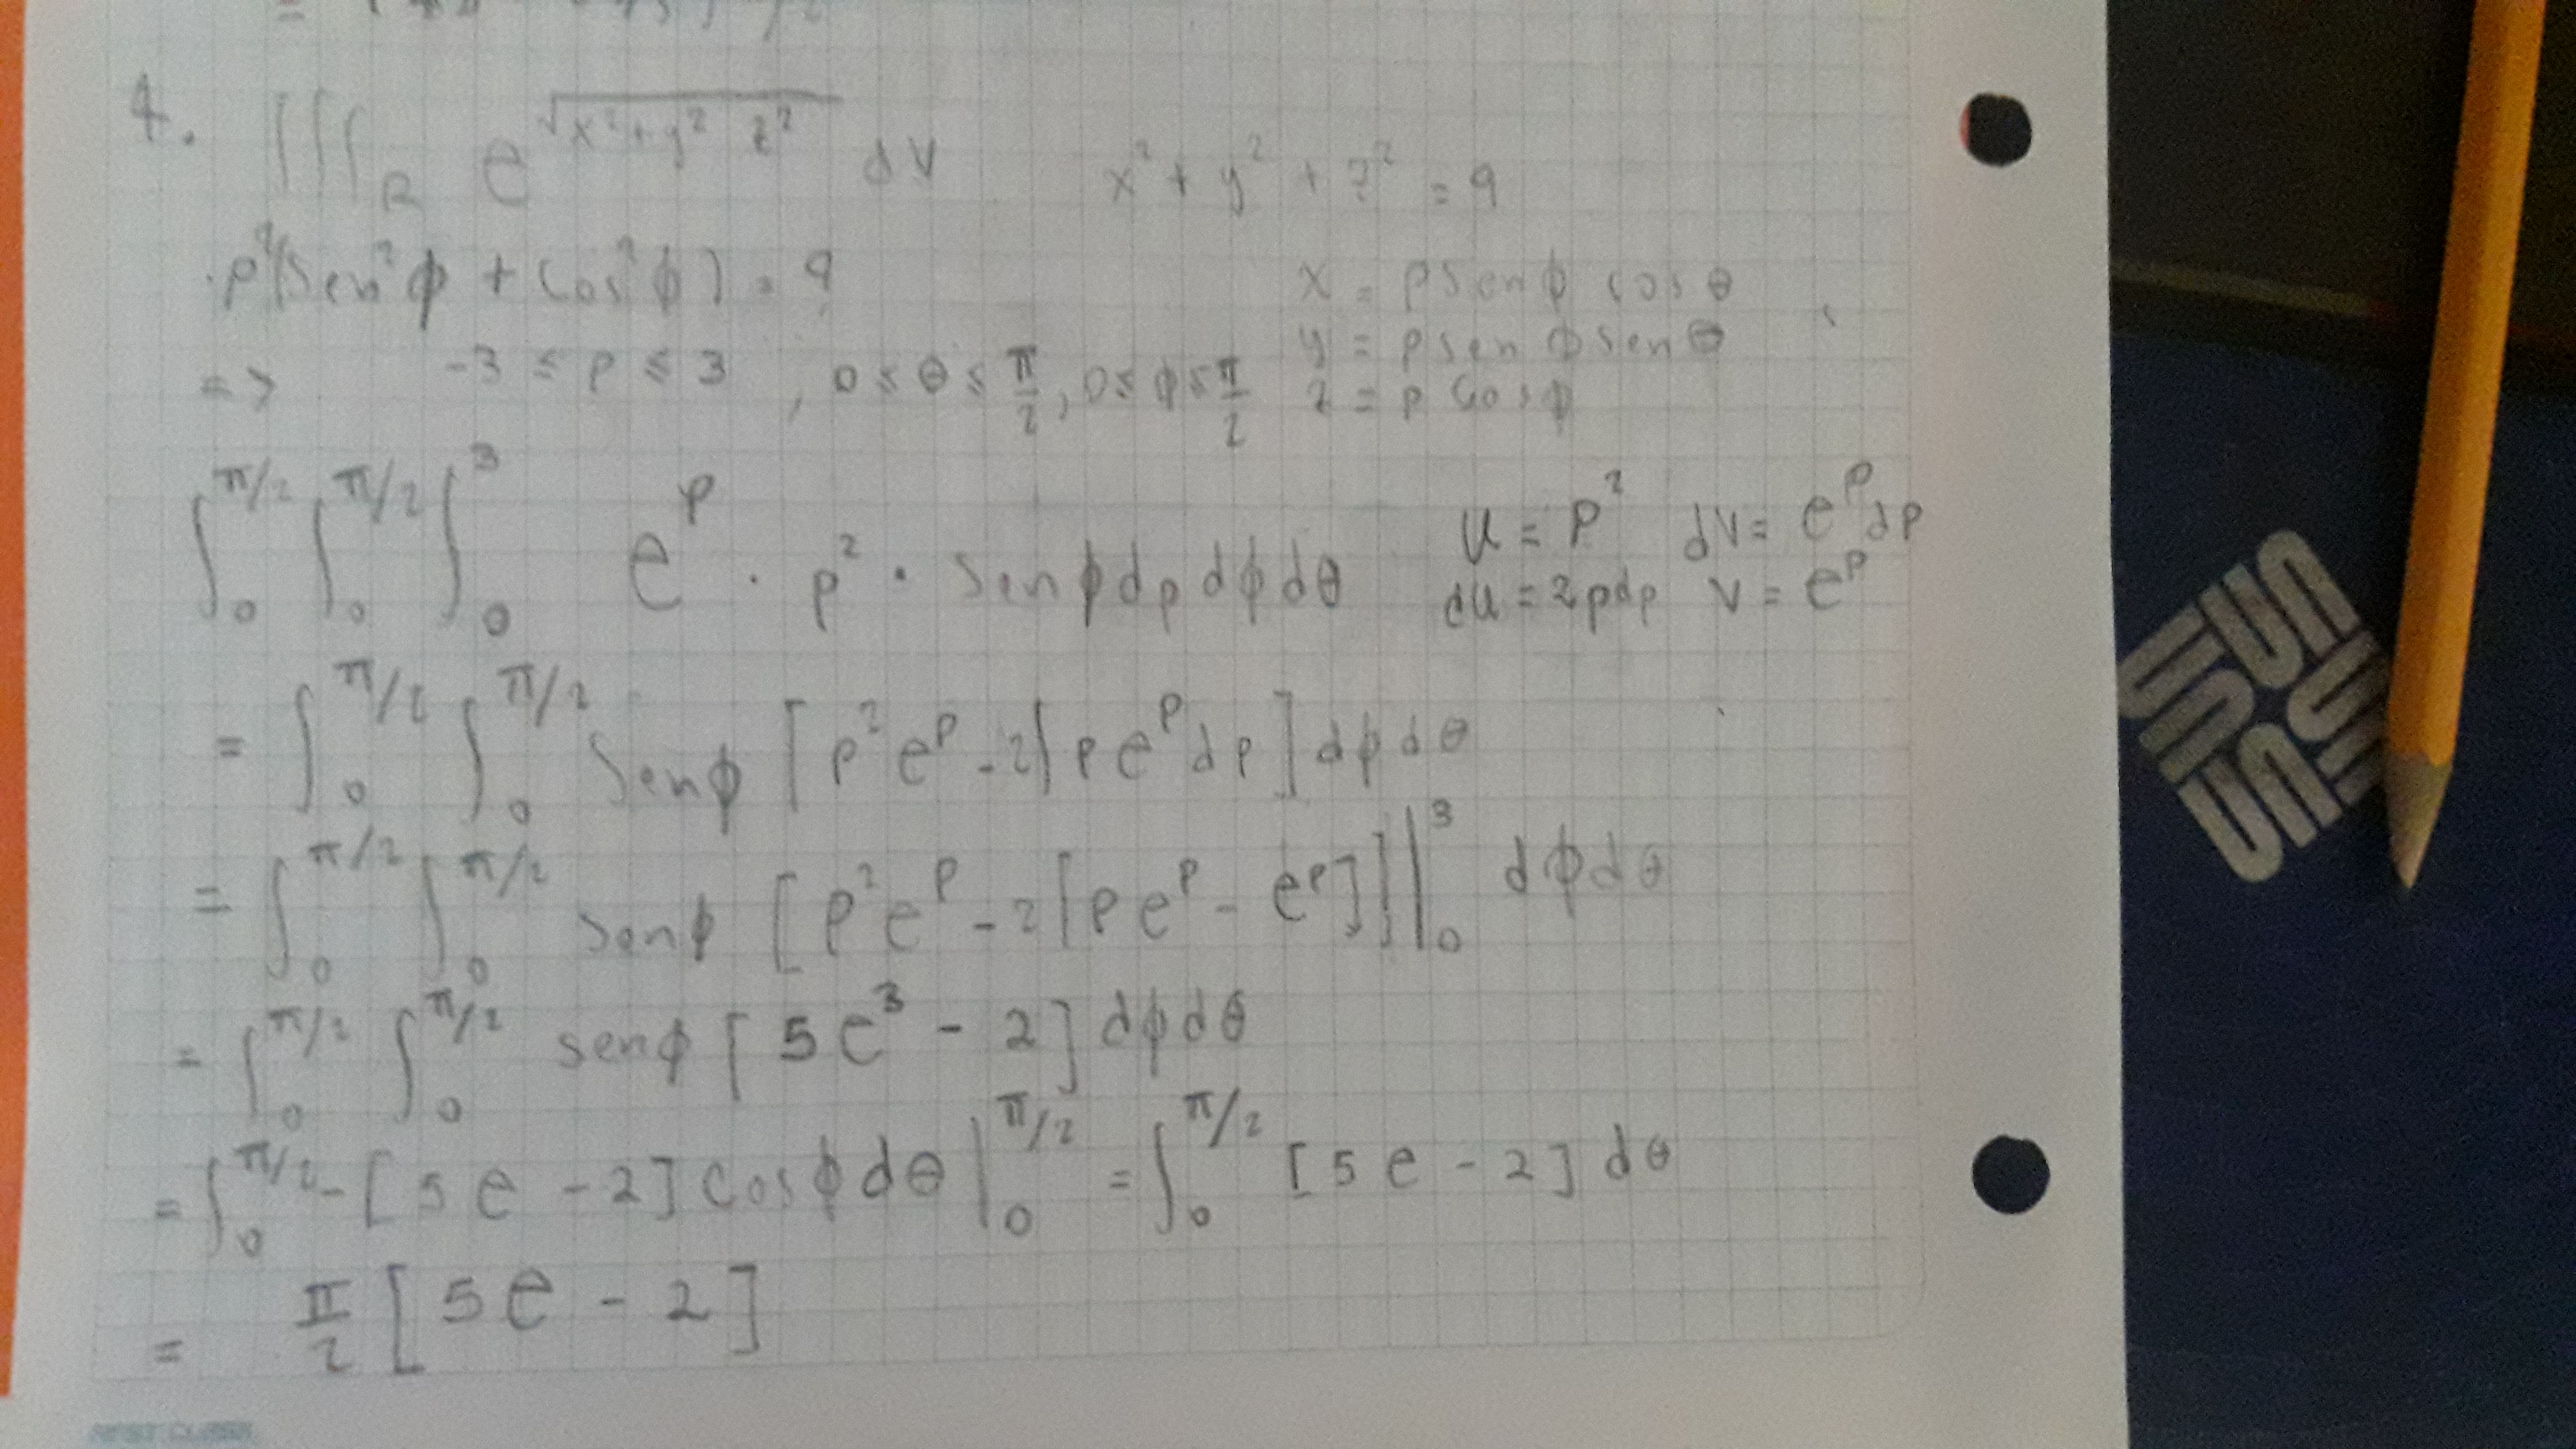 4. ∫∫∫_R e^√(x²+y² z²) dV x² + y² + z² = 9
ρ²(sen²φ + cos²φ) = 9 x = ρ sen φ cos θ
=> -3 ≤ ρ ≤ 3 , 0 ≤ θ ≤ π/2 , 0 ≤ φ ≤ π/2 y = ρ sen φ sen θ
z = ρ cos φ
∫_0^π/2 ∫_0^π/2 ∫_0^3 e^ρ · ρ² · sen φ dρ dφ dθ u = ρ² dv = e^ρ dρ
du = 2ρdρ v = e^ρ
= ∫_0^π/2 ∫_0^π/2 sen φ [ρ² e^ρ - 2∫ρ e^ρ dρ] dφ dθ
= ∫_0^π/2 ∫_0^π/2 sen φ [ρ² e^ρ - 2[ρ e^ρ - e^ρ]]|_0^3 dφ dθ
= ∫_0^π/2 ∫_0^π/2 sen φ [5e³ - 2] dφ dθ
= ∫_0^π/2 -[5e - 2] cos φ dθ |_0^π/2 = ∫_0^π/2 [5e - 2] dθ
= π/2 [5e - 2]